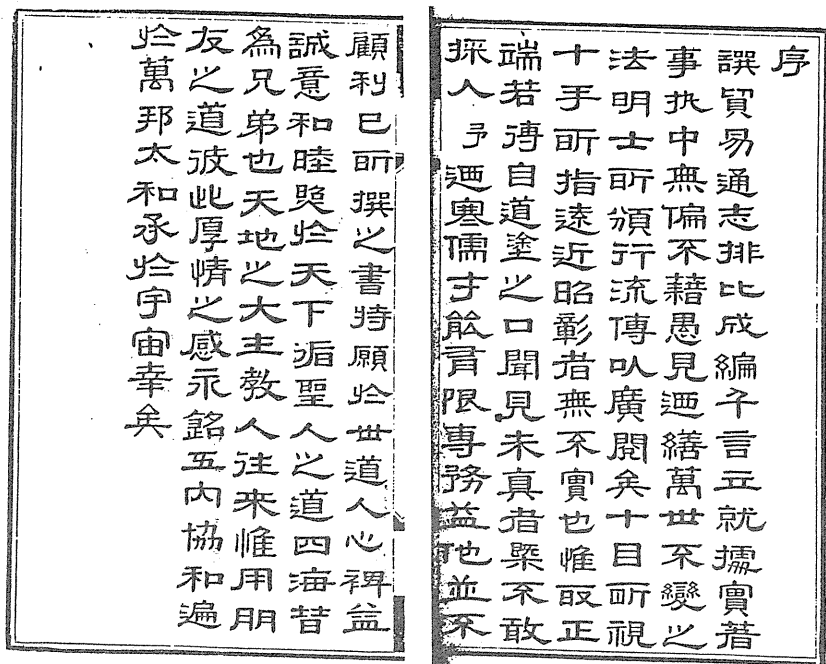 序
譔貿易通志排比成編千言立就據實著
事执中無偏不藉愚見迺繕萬世不變之
法明士所頒行流傳以廣閱矣十目所視
十手所指遠近昭彰者無不實也惟取正
端若得自道塗之口聞見未真者槩不敢
採人予迺寒儒才能有限專務益他並不
顧利己所撰之書特願於世道人心裨益
誠意和睦與於天下詬聖人之道四海皆
為兄弟也天地之大主教人往來惟用朋
友之道彼此厚情之感永銘五內協和遍
於萬邦太和承於宇宙幸矣